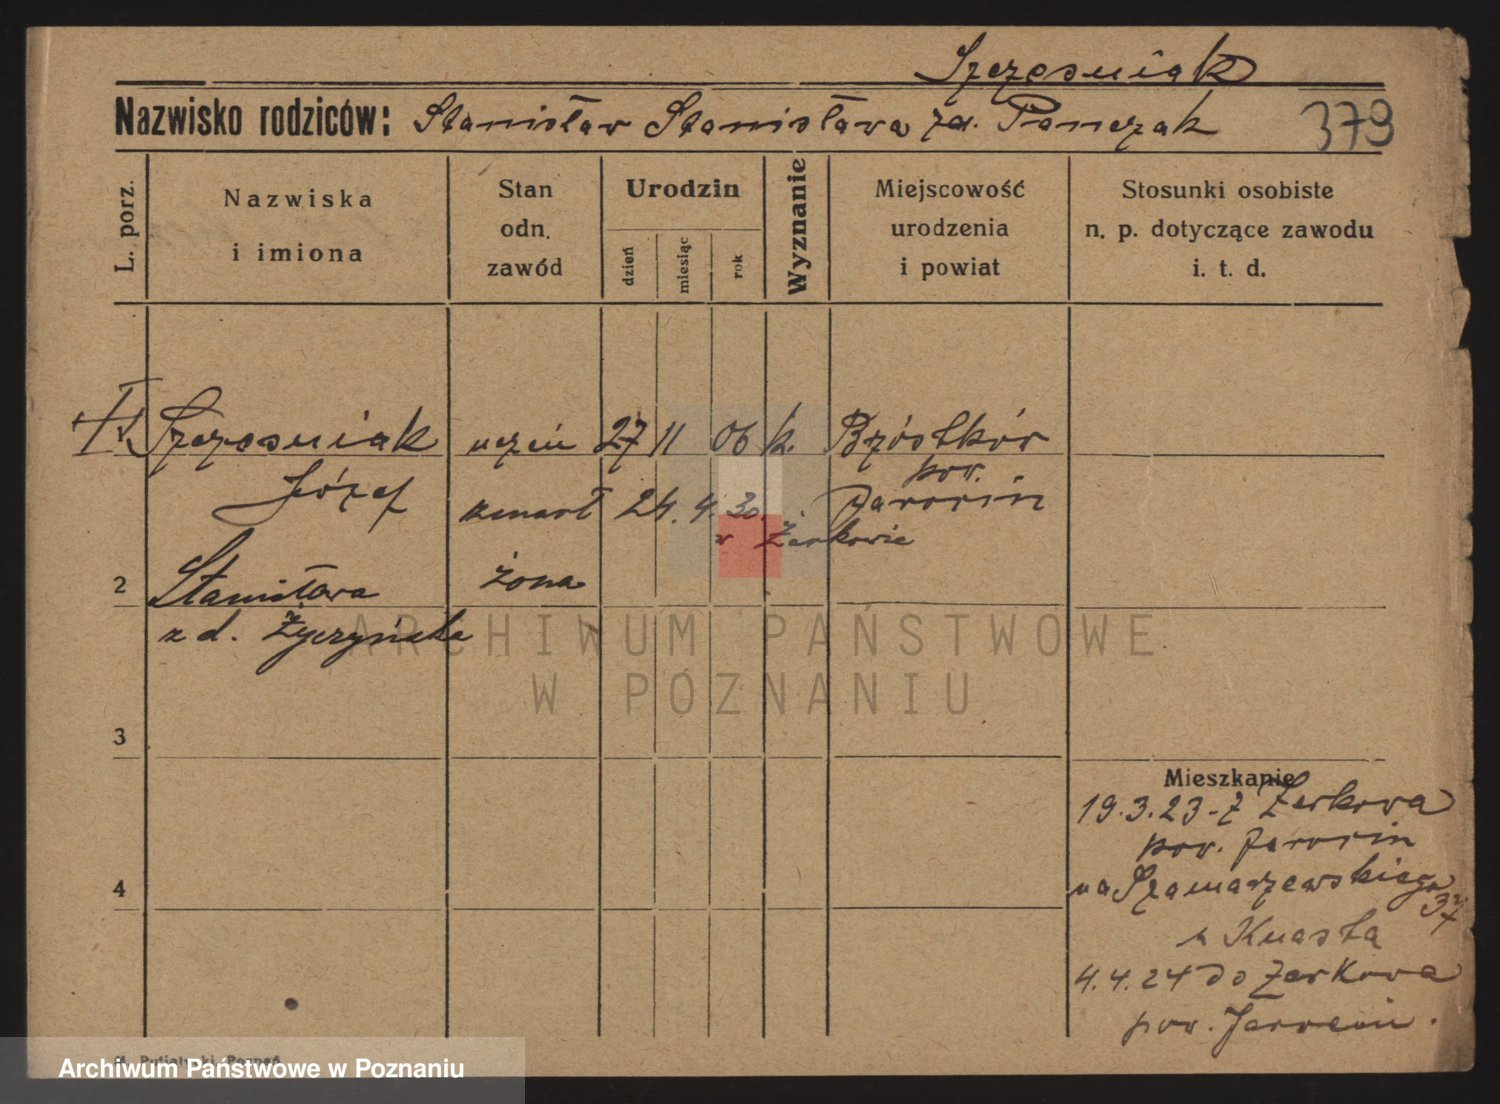 Szczesniak
Nazwisko rodziców: Stanisław Stanisława zd. Panczak
379
L. porz.
Nazwiska
i imiona
Stan
odn.
zawód
Urodzin
dzień
miesiąc
rok
Wyznanie
Miejscowość
urodzenia
i powiat
Stosunki osobiste
n. p. dotyczące zawodu
i. t. d.
Szczesniak uczeń 27 11 06 k. Brzóstków
pow.
Józef zmarł 24. 4. 30 Jarocin
w Żerkowie
2 Stanisława żona
z d. Życzyńska
3
Mieszkanie
19.3.23 - z Żerkowa
pow. Jarocin
4
na Szamarzewskiego
37
u Kuasta
4.4.24 do Żerkowa
pow. Jarocin.
ARCHIWUM PAŃSTWOWE
W POZNANIU
Poznań
Archiwum Państwowe w Poznaniu